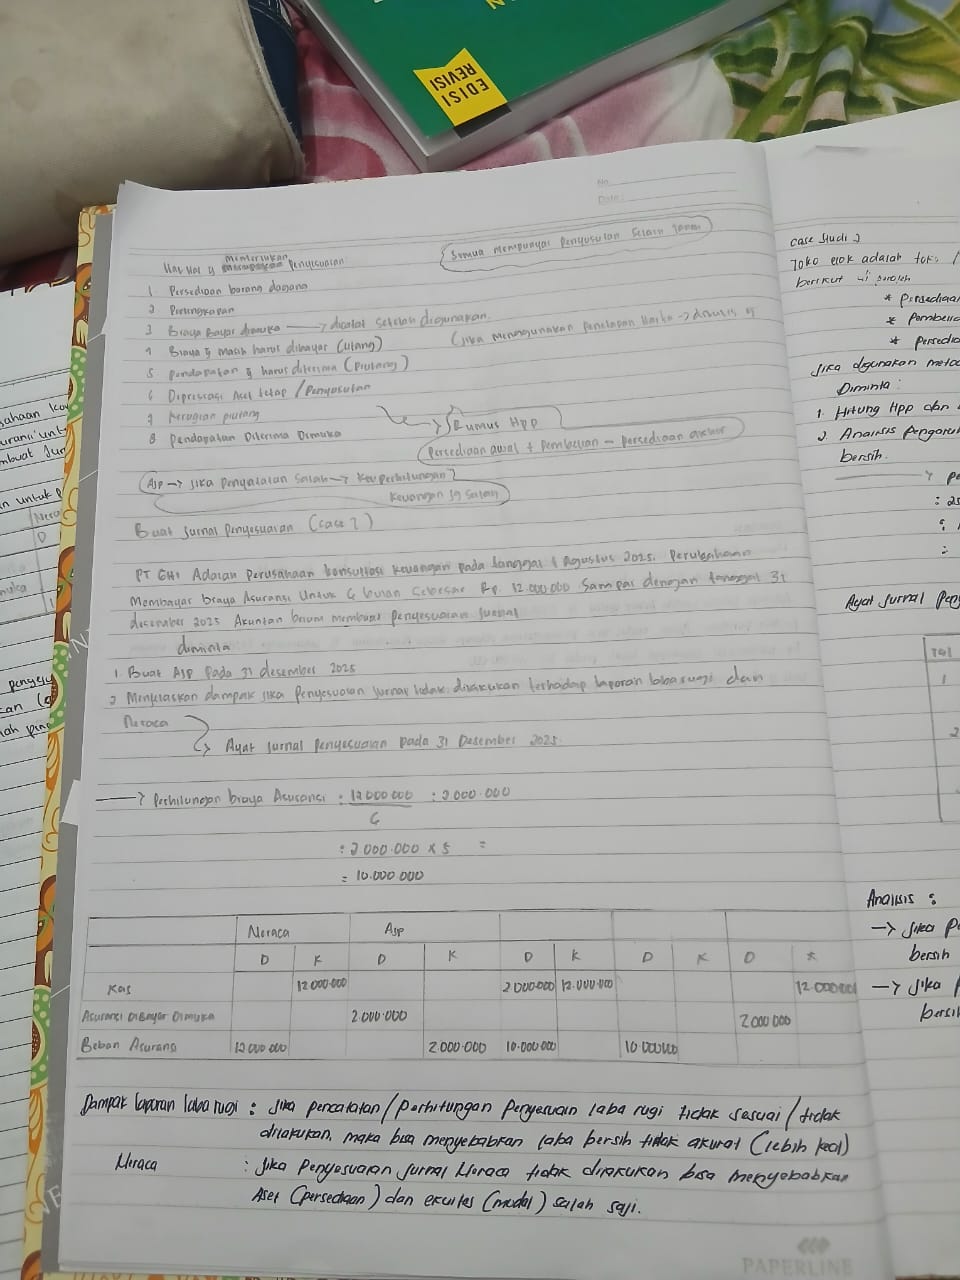 EDISI
REVISI
No
Date:
Hal hal yg memerlukan penyesuaian
Semua mempunyai Penyusutan selain tanah
1 Persediaan barang dagang
2 Perlengkapan
3 Biaya Bayar dimuka → dicatat setelah digunakan.
4 Biaya yg Masih harus dibayar (utang)
(jika menggunakan
5 pendapatan yg harus diterima (Piutang)
6 Depresiasi Aset tetap / Penyusutan
7 Kerugian piutang
8 Pendapatan Diterima Dimuka
Rumus Hpp
Persediaan awal + Pembelian - persediaan akhir
AJP → Jika Penyatatan Salah →
Keuangan yg salah
Buat Jurnal Penyesuaian (case 1)
PT GHI Adalah Perusahaan konsultasi keuangan pada tanggal 1 Agustus 2025.
Membayar biaya Asuransi Untuk 6 bulan Sebesar Rp. 12.000.000 Sampai dengan tanggal 31
desember 2025 Akuntan belum membuat penyesuaian jurnal
diminta
1. Buat AJP Pada 31 desember 2025
2 Menjelaskan dampak jika Penyesuaian jurnal tidak dilakukan terhadap laporan laba rugi dan
Neraca
→ Ayat jurnal penyesuaian pada 31 Desember 2025.
→ Perhitungan biaya Asuransi : 12.000.000 : 2.000.000
6
: 2.000.000 x 5 =
= 10.000.000
Neraca AJP
D K D K D K D K D K
Kas 12.000.000 2.000.000 12.000.000 12.000.000
Asuransi DiBayar Dimuka 2.000.000 2.000.000
Beban Asuransi 12.000.000 2.000.000 10.000.000 10.000.000
Dampak laporan laba rugi : Jika pencatatan/perhitungan penyesuain laba rugi tidak sesuai / tidak
dilakukan, maka bisa menyebabkan laba bersih tidak akurat (lebih kecil)
Neraca : Jika Penyesuaian jurnal Neraca tidak dilakukan bisa menyebabkan
Aset (persediaan) dan ekuitas (modal) salah saji.
PAPERLINE
case Studi 2
Toko elok adalah toko
berikut
* persediaan
* Pembelia
* Persedia
Jika digunakan metod
Diminta :
1. Hitung Hpp dan
2. Analisis Pengaruh
bersih.
→ Pe
: 25
Ayat Jurnal Peny
Tgl
1
2
Analisis :
→ Jika P
bersih
→ Jika
bersih